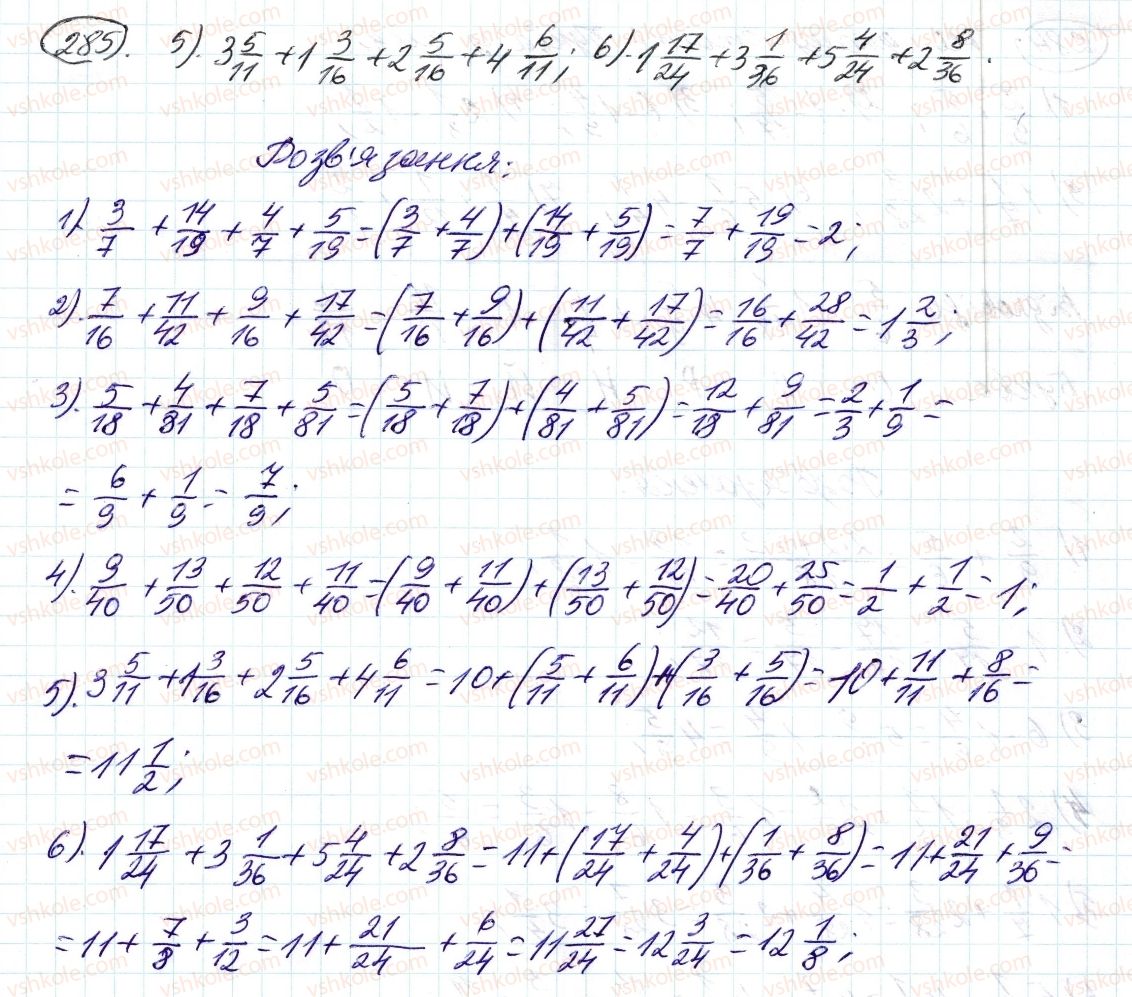 285. 5). 3 5/11 + 1 3/16 + 2 5/16 + 4 6/11; 6). 1 17/24 + 3 1/36 + 5 4/24 + 2 8/36.
Розв'язання:
1). 3/7 + 14/19 + 4/7 + 5/19 = (3/7 + 4/7) + (14/19 + 5/19) = 7/7 + 19/19 = 2;
2). 7/16 + 11/42 + 9/16 + 17/42 = (7/16 + 9/16) + (11/42 + 17/42) = 16/16 + 28/42 = 1 2/3;
3). 5/18 + 4/81 + 7/18 + 5/81 = (5/18 + 7/18) + (4/81 + 5/81) = 12/18 + 9/81 = 2/3 + 1/9 =
= 6/9 + 1/9 = 7/9;
4). 9/40 + 13/50 + 12/50 + 11/40 = (9/40 + 11/40) + (13/50 + 12/50) = 20/40 + 25/50 = 1/2 + 1/2 = 1;
5). 3 5/11 + 1 3/16 + 2 5/16 + 4 6/11 = 10 + (5/11 + 6/11) + (3/16 + 5/16) = 10 + 11/11 + 8/16 =
= 11 1/2;
6). 1 17/24 + 3 1/36 + 5 4/24 + 2 8/36 = 11 + (17/24 + 4/24) + (1/36 + 8/36) = 11 + 21/24 + 9/36 =
= 11 + 7/8 + 3/12 = 11 + 21/24 + 6/24 = 11 27/24 = 12 3/24 = 12 1/8;